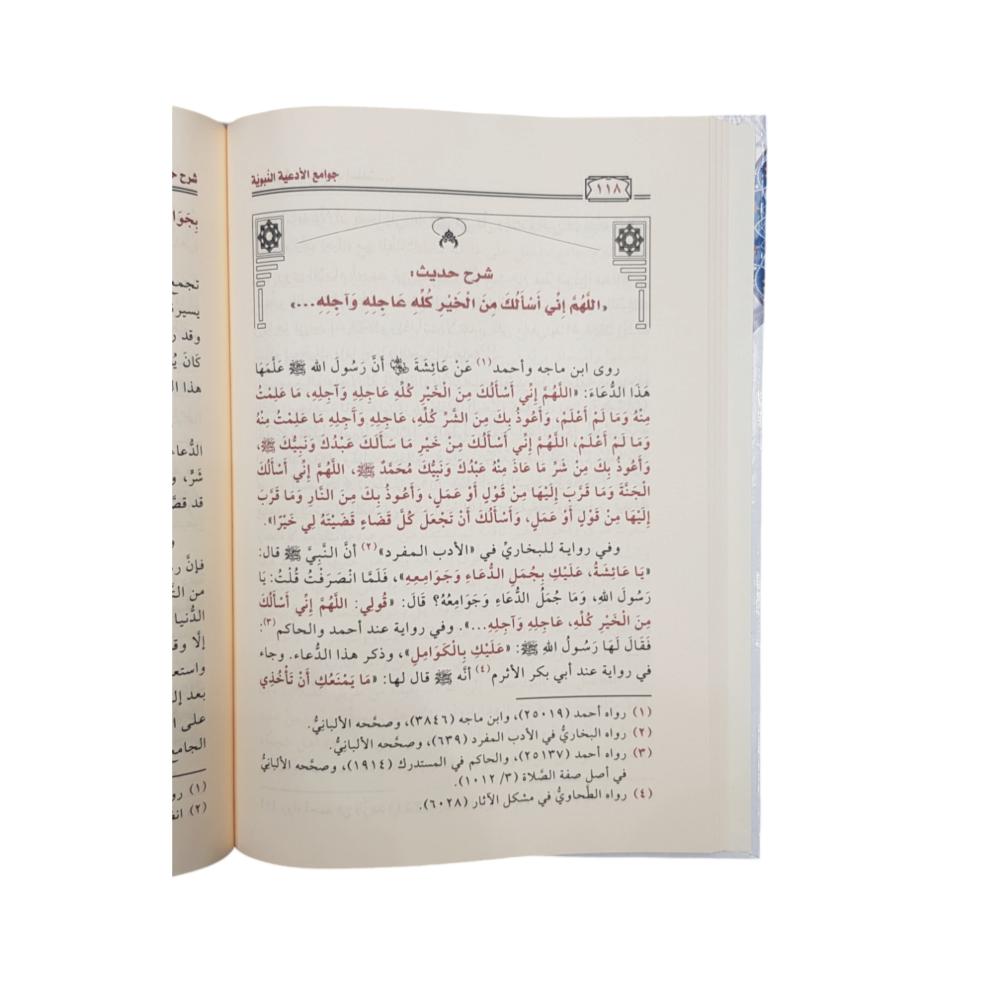 جوامع الأدعية النبوية
١١٨
شرح حديث:
«اللهُمَّ إِنِّي أَسْأَلُكَ مِنَ الْخَيْرِ كُلِّهِ عَاجِلِهِ وَآجِلِهِ...»
روى ابن ماجه وأحمد(١) عَنْ عَائِشَةَ ﵂ أَنَّ رَسُولَ الله ﷺ عَلَّمَهَا
هَذَا الدُّعَاءَ: «اللهُمَّ إِنِّي أَسْأَلُكَ مِنَ الْخَيْرِ كُلِّهِ عَاجِلِهِ وَآجِلِهِ، مَا عَلِمْتُ
مِنْهُ وَمَا لَمْ أَعْلَمْ، وَأَعُوذُ بِكَ مِنَ الشَّرِّ كُلِّهِ، عَاجِلِهِ وَآجِلِهِ مَا عَلِمْتُ مِنْهُ
وَمَا لَمْ أَعْلَمْ، اللهُمَّ إِنِّي أَسْأَلُكَ مِنْ خَيْرِ مَا سَأَلَكَ عَبْدُكَ وَنَبِيُّكَ ﷺ،
وَأَعُوذُ بِكَ مِنْ شَرِّ مَا عَاذَ مِنْهُ عَبْدُكَ وَنَبِيُّكَ مُحَمَّدٌ ﷺ، اللهُمَّ إِنِّي أَسْأَلُكَ
الْجَنَّةَ وَمَا قَرَّبَ إِلَيْهَا مِنْ قَوْلٍ أَوْ عَمَلٍ، وَأَعُوذُ بِكَ مِنَ النَّارِ وَمَا قَرَّبَ
إِلَيْهَا مِنْ قَوْلٍ أَوْ عَمَلٍ، وَأَسْأَلُكَ أَنْ تَجْعَلَ كُلَّ قَضَاءٍ قَضَيْتَهُ لِي خَيْرًا».
وفي رواية للبخاريِّ في «الأدب المفرد»(٢) أنَّ النَّبِيَّ ﷺ قال:
«يَا عَائِشَةُ، عَلَيْكِ بِجُمَلِ الدُّعَاءِ وَجَوَامِعِهِ»، فَلَمَّا انْصَرَفْتُ قُلْتُ: يَا
رَسُولَ اللهِ، وَمَا جُمَلُ الدُّعَاءِ وَجَوَامِعُهُ؟ قَالَ: «قُولِي: اللهُمَّ إِنِّي أَسْأَلُكَ
مِنَ الْخَيْرِ كُلِّهِ، عَاجِلِهِ وَآجِلِهِ...». وفي رواية عند أحمد والحاكم(٣):
فَقَالَ لَهَا رَسُولُ اللهِ ﷺ: «عَلَيْكِ بِالْكَوَامِلِ»، وذكر هذا الدُّعاء. وجاء
في رواية عند أبي بكر الأثرم(٤) أنَّه ﷺ قال لها: «مَا يَمْنَعُكِ أَنْ تَأْخُذِي
(١) رواه أحمد (٢٥٠١٩)، وابن ماجه (٣٨٤٦)، وصحَّحه الألبانيُّ.
(٢) رواه البخاريُّ في الأدب المفرد (٦٣٩)، وصحَّحه الألبانيُّ.
(٣) رواه أحمد (٢٥١٣٧)، والحاكم في المستدرك (١٩١٤)، وصحَّحه الألبانيُّ
في أصل صفة الصَّلاة (٣/ ١٠١٢).
(٤) رواه الطَّحاويُّ في مشكل الآثار (٦٠٢٨).
شرح
تجمع
وقد
هذا
الدُّعاء
شَرٌّ،
فإنَّ
من
الدُّنيا
إلَّا
بعد
على
الجامع
(١)
(٢)